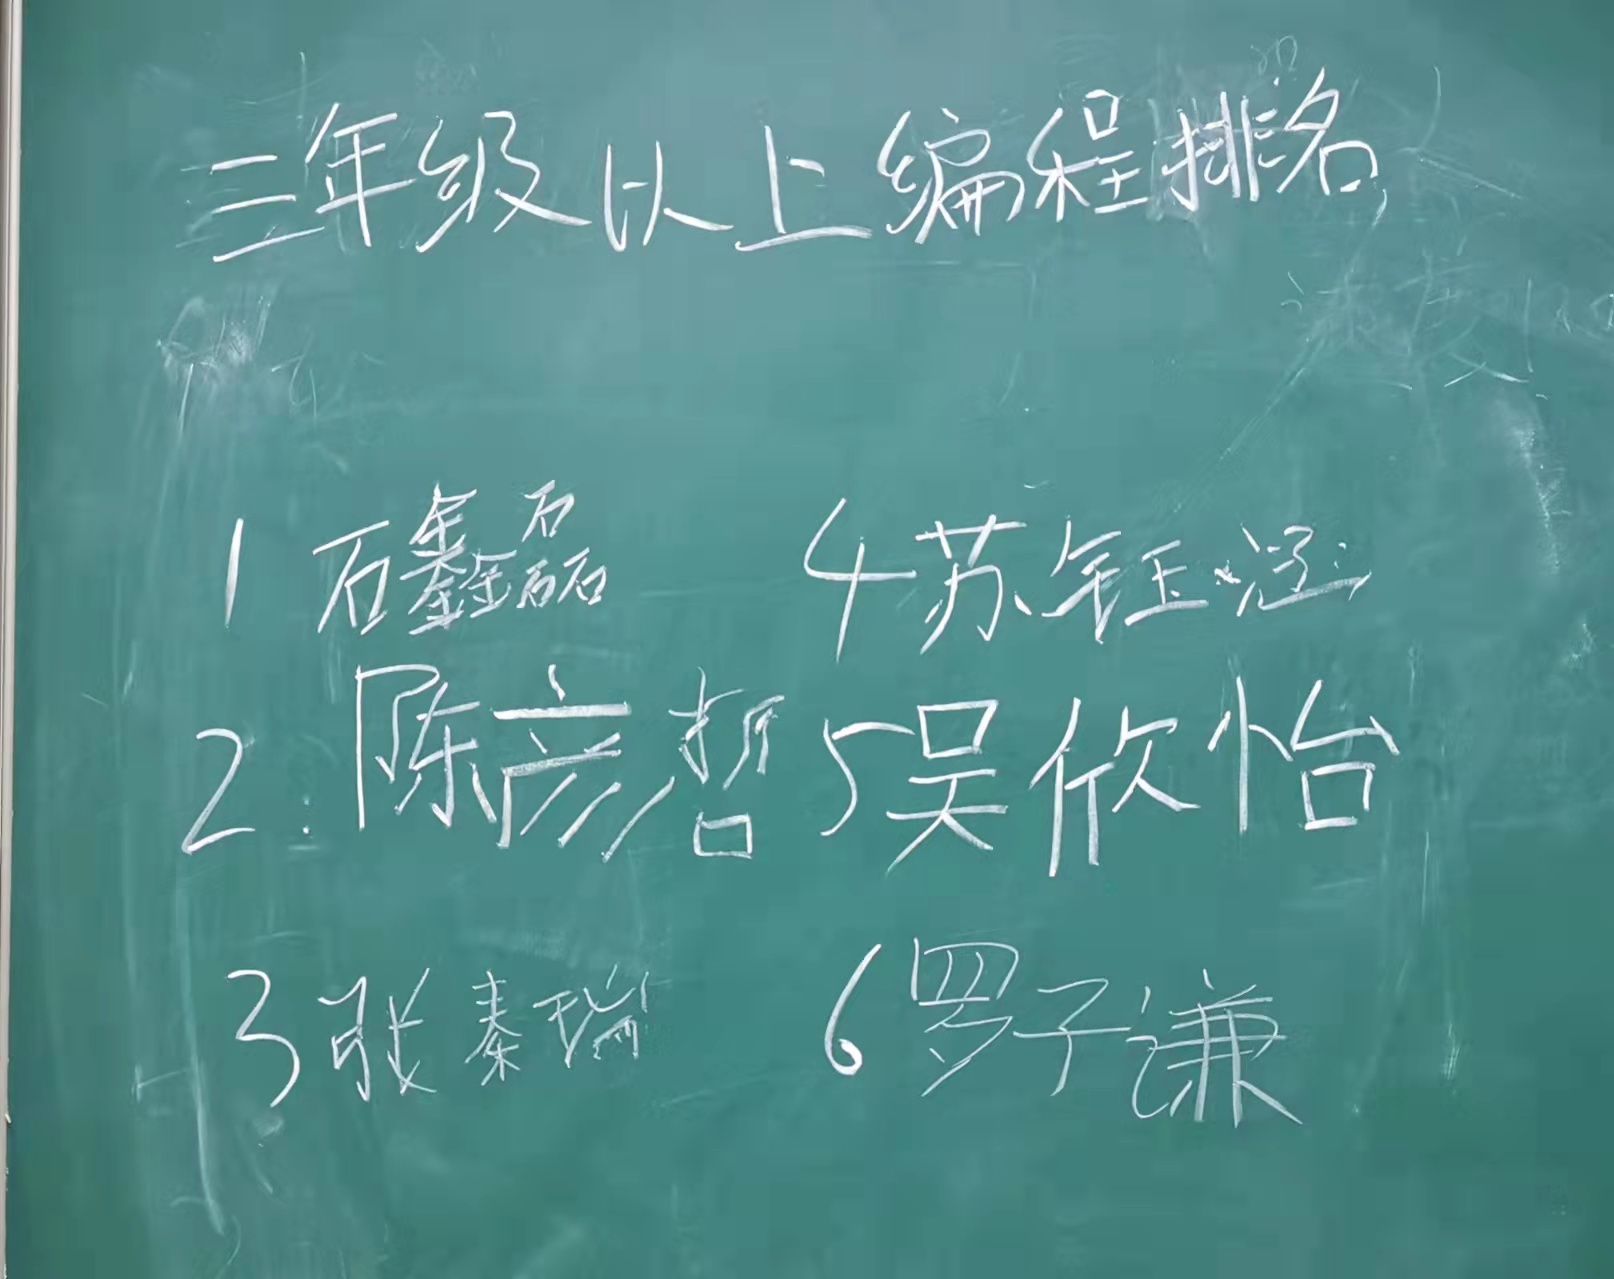 三年级以上编程排名
1 石鑫磊
2. 陈彦哲
3 张秦瑞
4 苏钰涵
5 吴欣怡
6 罗子谦